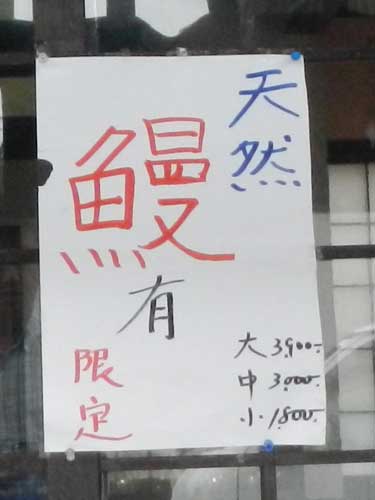 天然
鰻
有
限定
大 3,900-
中 3,000-
小 1,800-